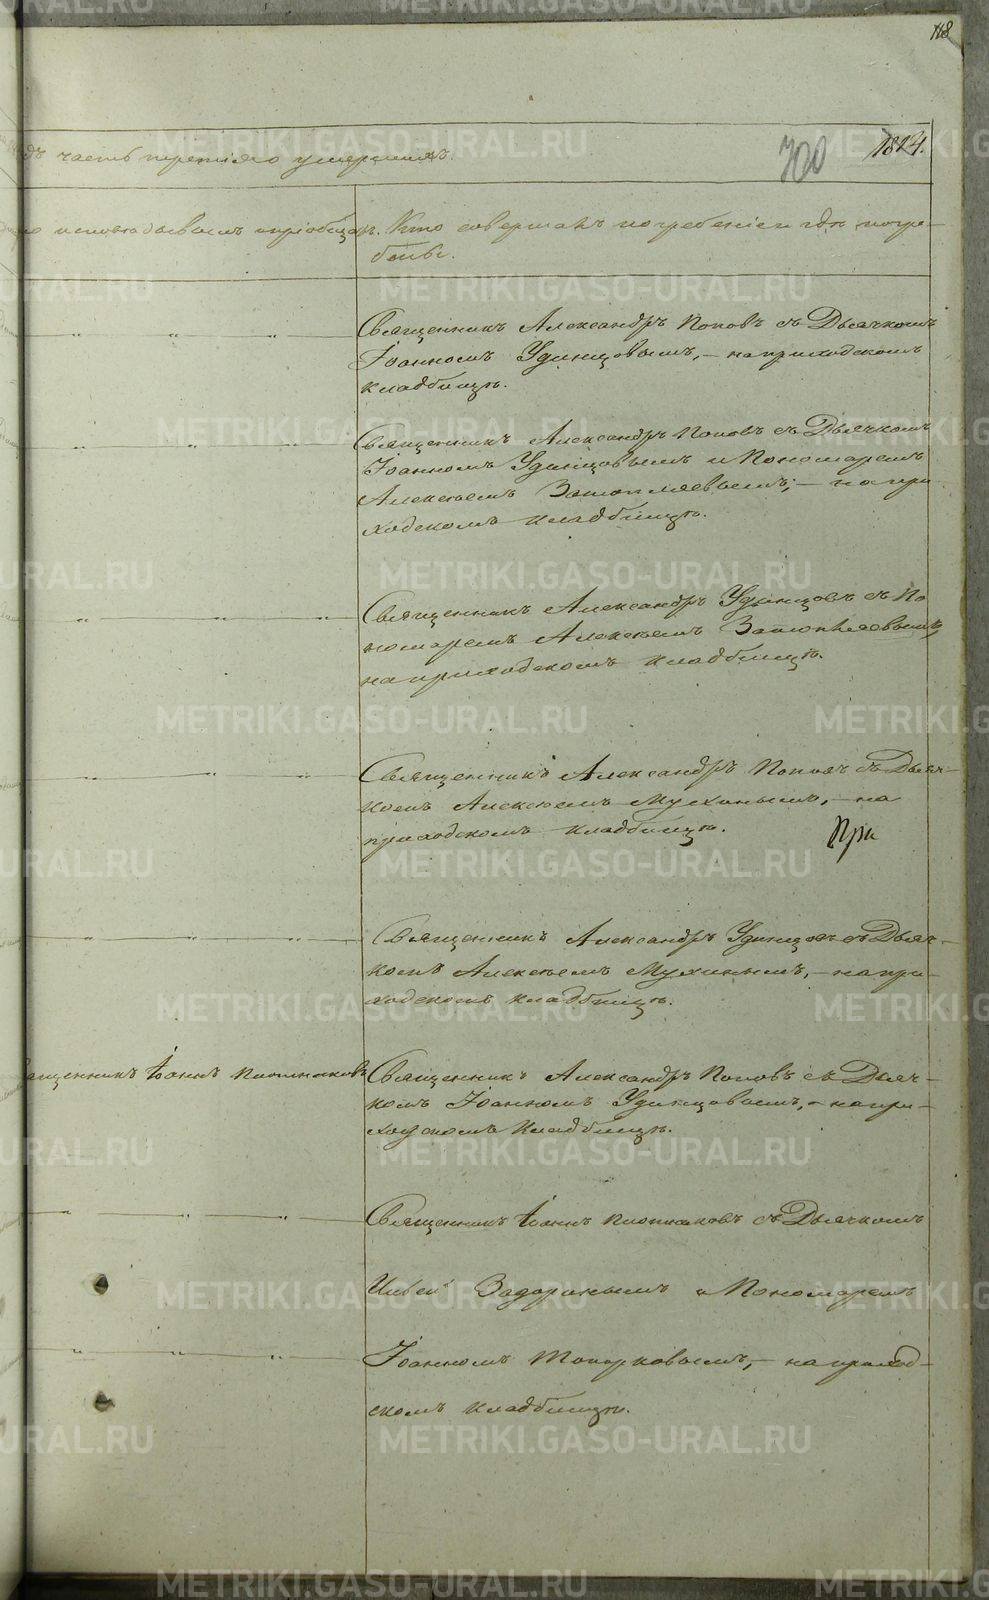 118
часть третія о умершихъ.
700
1824.
исповѣдывалъ и пріобщалъ.
Кто совершалъ погребеніе и гдѣ погре-
бены.
Священникъ Александръ Поповъ съ Дьячкомъ
Іоанномъ Удинцовымъ, – на приходскомъ
кладбищѣ.
Священникъ Александръ Поповъ съ Дьячкомъ
Іоанномъ Удинцовымъ и Пономаремъ
Алексѣемъ Затопляевымъ; – на при-
ходскомъ кладбищѣ.
Священникъ Александръ Удинцовъ съ По
номаремъ Алексѣемъ Затопляевымъ,
на приходскомъ кладбищѣ.
Священникъ Александръ Поповъ съ Дьяч-
комъ Алексѣемъ Мухинымъ, – на
приходскомъ кладбищѣ.
При
Священникъ Александръ Удинцовъ съ Дьяч-
комъ Алексѣемъ Мухинымъ, – на при-
ходскомъ кладбищѣ.
ященникъ Іоаннъ Плотниковъ
Священникъ Александръ Поповъ съ Дьяч-
комъ Іоанномъ Удинцовымъ, – на при-
ходскомъ кладбищѣ.
Священникъ Іоаннъ Плотниковъ съ Дьячкомъ
Ильей Задоринымъ и Пономаремъ
Іоанномъ Топорковымъ, – на приход-
скомъ кладбищѣ.
METRIKI.GASO-URAL.RU